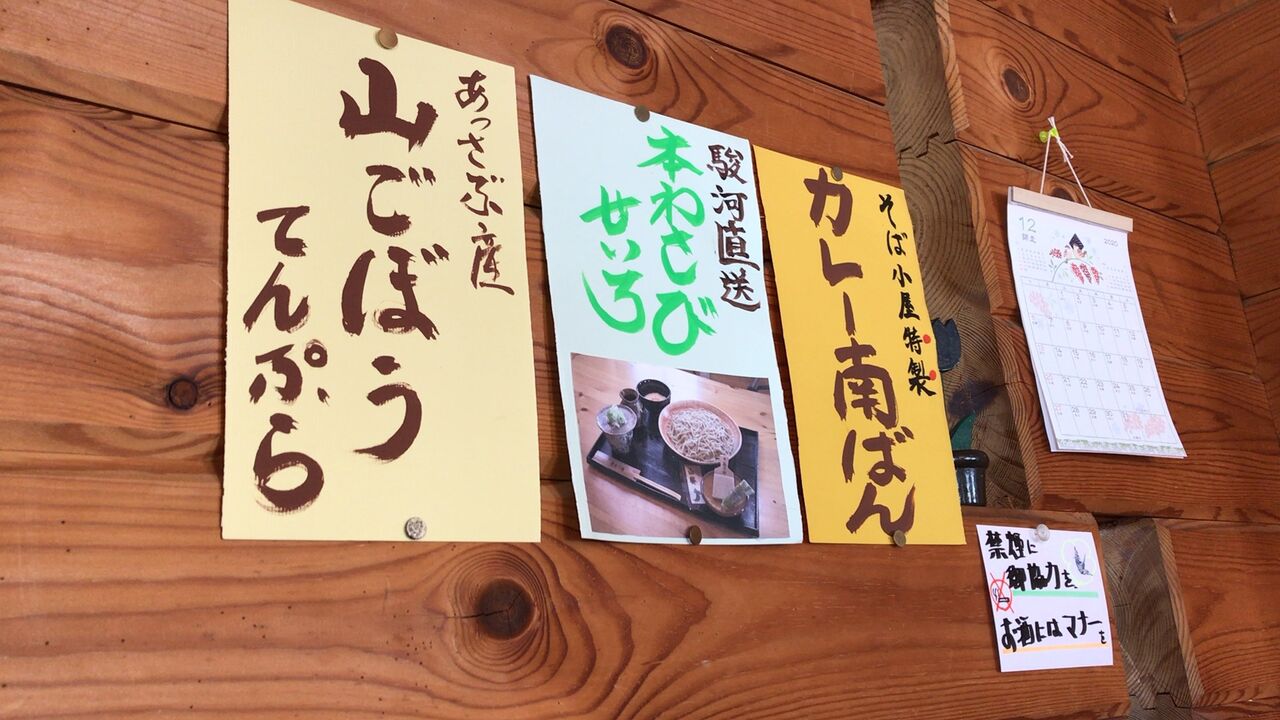 あっさぶ産
山ごぼう
てんぷら
駿河直送
本わさび
せいろ
そば小屋特製
カレー南ばん
12
2020
禁煙に
御協力を
お酒にはマナーを